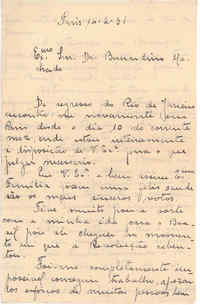 Paris 14-2-31
Exmo Snr Dr Bernardino Ma-
chado
De regresso do Rio de Janeiro
encontro-me novamente em
Paris desde o dia 10 do corrente
mez onde estou inteiramente
á disposição de V. Exª para o que
julgar necessario.
Que V. Exª e bem assim Exma
Familia gosem uma feliz saude
são os meus sinceros votos.
Tive muito pouca sorte
com a minha ida para o Bra-
sil pois ali cheguei no momen-
to em que a Revolução reben-
tou.
Foi-me completamente im-
possivel conseguir trabalho, apezar
dos esforços de muitas pessoas